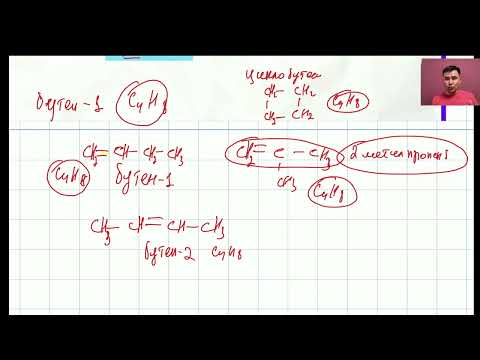 бутен-1 C4H8
циклобутан
CH2 CH2
CH2 CH2 C4H8
CH2= CH- CH2- CH3
C4H8 бутен-1
CH2= C - CH3 2 метилпропен 1
CH3
C4H8
CH3- CH= CH- CH3
бутен-2 C4H8